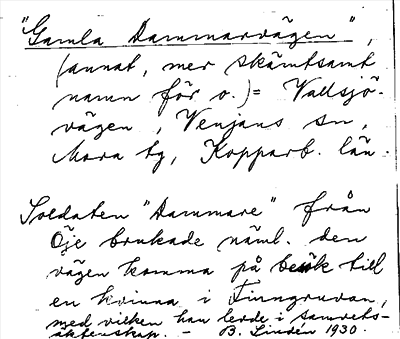 "Gamla Dammarvägen",
(annat, mer skämtsamt
namn för o.) = Vallsjö-
vägen, Venjans sn,
Mora tg, Kopparb. län.
Soldaten "Dammare" från
Öje brukade näml. den
vägen komma på besök till
en kvinna i Finngruvan,
med vilken han levde i samvets-
äktenskap. – B. Lindén 1930.